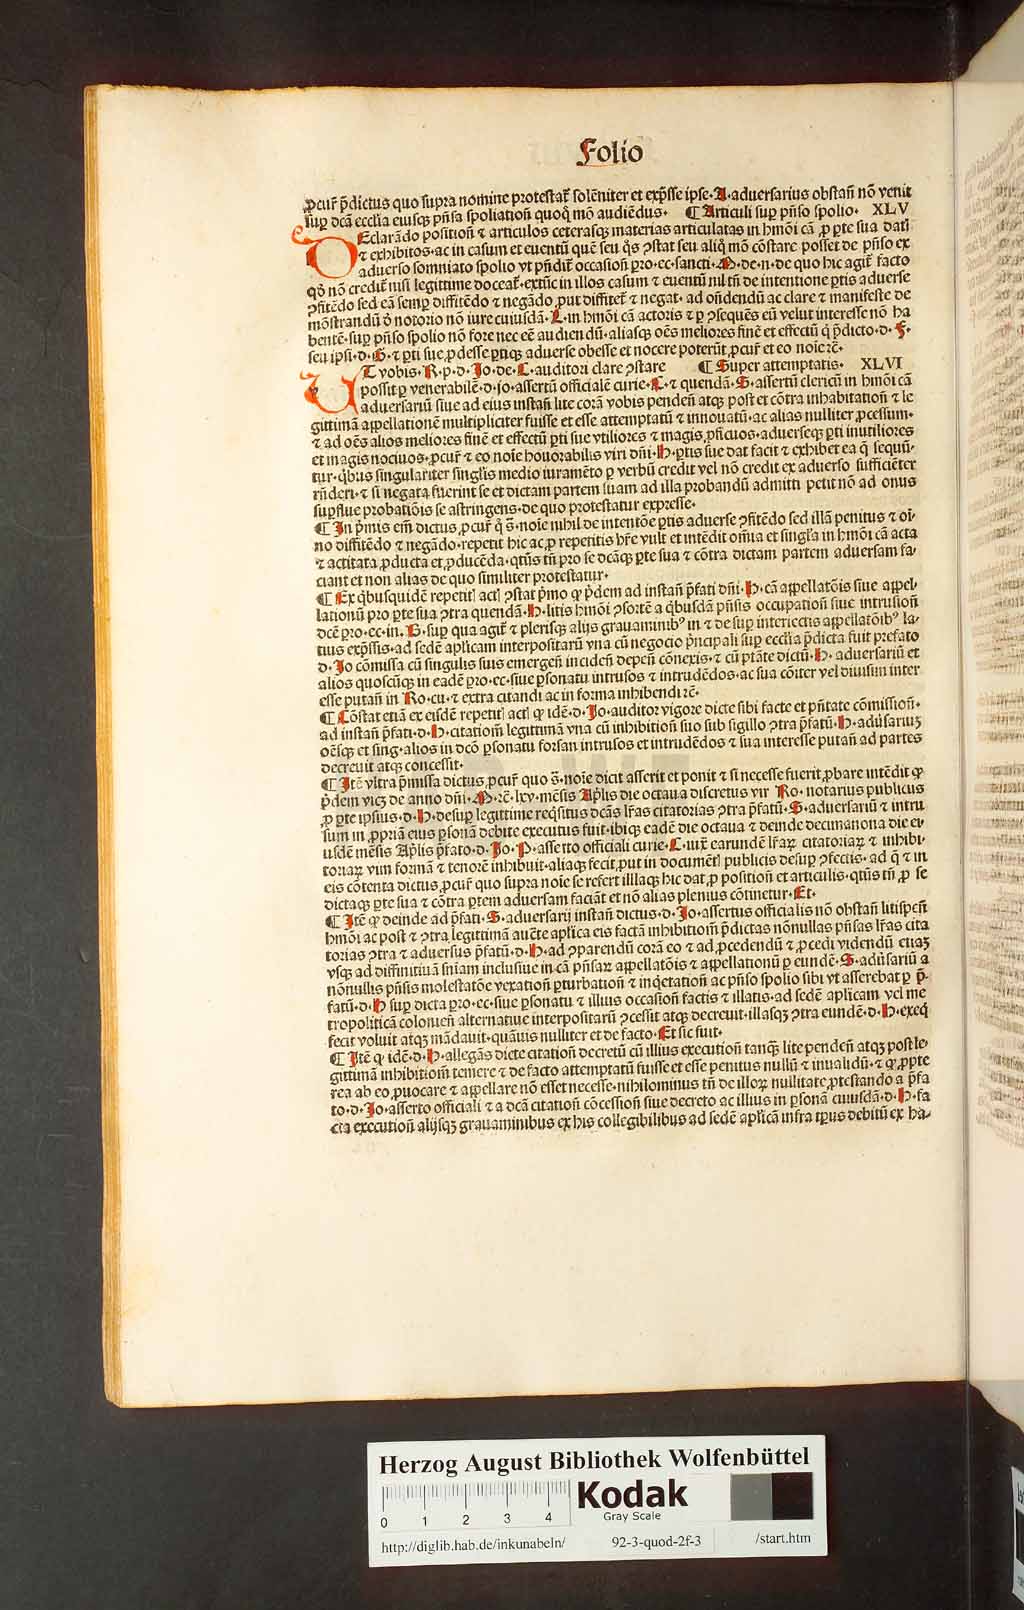 Folio
ꝓcur̄ p̄dictus quo supra nomine protestat᷑ solēniter et exp̄sse ipse. A. aduersarius obstan̄ nō venit
suꝑ dcā ecclia eiusqꝫ pn̄sa spoliation̄ quoq̄ mō audiēdus. ¶ Articuli suꝑ pn̄so spolio. XLV
DEclarādo position̄ ⁊ articulos ceterasqꝫ materias articulatas in hm̄oi cā ꝓ ꝑte sua dati
⁊ exhibitos. ac in casum et euentū quē seu q̄s ꝯstat seu aliq̄ mō cōstare posset de pn̄so ex
aduerso somniato spolio vt pn̄dit᷑ occasion̄ ꝑro. ec. sancti. M. de. n. de quo hic agit᷑ facto
qd̄ nō credit᷑ nisi legittime doceat᷑. extūc in illos casum ⁊ euentū nil tn̄ de intentione ꝑtis aduerse
ꝯfitēdo sed eā semꝑ diffitēdo ⁊ negādo ꝓut diffitet᷑ ⁊ negat. ad on̄dendū ac clare ⁊ manifeste de
mōstrandū ō notorio nō iure cuiusdā. L. in hm̄oi cā actoris ⁊ ꝑ ꝯsequēs eū velut interesse nō ha
bentē. suꝑ pn̄so spolio nō fore nec eē audiendū. aliasqꝫ oēs meliores finē et effectū q̄ p̄dicto. d. F.
seu ipsi. d. G. ⁊ ꝑti sue ꝓdesse ꝑtiqꝫ aduerse obesse et nocere poterūt ꝓcur̄ et eo noīe rē.
VT vobis. R. p. d. Jo. de. C. auditori clare ꝯstare ¶ Super attemptatis. XLVI
possit ꝑ venerabilē. d. jo. assertū officialē curie. C. ⁊ quendā. S. assertū clericū in hm̄oi cā
aduersariū siue ad eius instan̄ lite corā vobis penden̄ atqꝫ post et cōtra inhabitationē ⁊ le
gittimā appellationē multipliciter fuisse et esse attemptatū ⁊ innouatū. ac alias nulliter ꝓcessum.
⁊ ad oēs alios meliores finē et effectū ꝑti sue vtiliores ⁊ magis ꝓficuos. aduerseqꝫ ꝑti inutiliores
et magis nociuos. ꝓcur̄ ⁊ eo noīe honorabilis viri dn̄i. H. ꝑtis sue dat facit ⁊ exhibet ea q̄ sequū.
tur. q̄bus singulariter singlīs medio iuramēto ꝑ verbū credit vel nō credit ex aduerso sufficiēter
rn̄deri. ⁊ si negata fuerint se et dictam partem suam ad illa probandū admitti petit nō ad onus
suꝑflue probatiōis se astringens. de quo protestatur expresse.
¶ In p̄mis em̄ dictus ꝓcur̄ q̄ s̄. noīe nihil de intentōe ꝑtis aduerse ꝯfitēdo sed illā penitus ⁊ oī.
no diffitēdo ⁊ negādo. repetit hic ac ꝓ repetitis hr̄e vult et intēdit om̄ia et singl̄a in hm̄oi cā acta
⁊ actitata ꝓducta et ꝓducēda. qtūs tn̄ pro se dcāqꝫ ꝑte sua ⁊ cōtra dictam partem aduersam fa.
ciant et non alias de quo similiter protestatur.
¶ Ex q̄busquidē repetit᷑ acti᷑ ꝯstat p̄mo ꝙ p̄dem ad instan̄ p̄fati dn̄i. H. cā appellatōis siue appel.
lationū pro ꝑte sua ꝯtra quendā. H. litis hm̄oi ꝯsortē a q̄busdā pn̄sis occupation̄ siue intrusion̄
dcē ꝑro. ec. in. B. suꝑ qua agit᷑ ⁊ plerisqꝫ alijs grauaminibꝰ in ⁊ desuꝑ interiectis appellatōibꝰ la.
tius exp̄ssis. ad sedē aplicam interpositarū vna cū negocio p̄ncipali suꝑ eccl̄ia p̄dicta fuit prefato
d. Jo cōmissa cū singulis suis emergen̄ inciden̄ depen̄ cōnexis. ⁊ cū ptāte dictū. H. aduersariū et
alios quoscūqꝫ in eadē ꝑro. ec. siue ꝑsonatu intrusos ⁊ intrudēdos. ac sua cōiter vel diuisim inter
esse putan̄ in Ro. cu. ⁊ extra citandi ac in forma inhibendi rē.
¶ Cōstat etiā ex eisdē repetit᷑ acti᷑ ꝙ idē. d. Jo. auditor vigore dicte sibi facte et pn̄tate cōmission̄.
ad instan̄ p̄fati. d. H. citationē legittimā vna cū inhibition̄ suo sub sigillo ꝯtra p̄fatū. H. adu̇sariuꝫ
oēsqꝫ et sing. alios in dcō ꝑsonatu forsan intrusos et intrudēdos ⁊ sua interesse putan̄ ad partes
decreuit atqꝫ concessit.
¶ Itē vltra p̄missa dictus ꝓcur̄ quo s̄. noīe dicit asserit et ponit ⁊ si necesse fuerit ꝓbare intēdit ꝙ
p̄dem vicꝫ de anno dn̄i. M. rē. lxv. mēsis Ap̄lis die octaua discretus vir Ro. notarius publicus
ꝓ ꝑte ipsius. d. H. desuꝑ legittime req̄situs dcās lr̄as citatorias ꝯtra p̄fatū. S. aduersariū ⁊ intru
sum in ꝓpriā eius ꝑsonā debite executus fuit. ibiqꝫ eadē die octaua ⁊ deinde decimanona die ei.
usdē mēsis Ap̄lis p̄fato. d. Jo. P. asserto officiali curie. C. iux̄ earundē lr̄aꝝ citatoriaꝝ ⁊ inhibi.
toriaꝝ vim formā ⁊ tenorē inhibuit. aliaqꝫ fecit ꝓut in document᷑ publicis desuꝑ ꝯfectis. ad q̄ ⁊ in
eis cōtenta dictus ꝓcur̄ quo supra noīe se refert illaqꝫ hic dat ꝓ position̄ et articulis. qtūs tn̄ ꝓ se
dictaqꝫ ꝑte sua ⁊ cōtra ꝑtem aduersam faciāt et nō alias plenius cōtinetur. Et.
¶ Itē ꝙ deinde ad p̄fati. S. aduersarij instan̄ dictus. d. Jo. assertus officialis nō obstan̄ litispen̄
hm̄oi ac post ⁊ ꝯtra legittimā auc̄te aplica eis factā inhibitionē p̄dictas nōnullas pn̄sas lr̄as cita
torias ꝯtra ⁊ aduersus p̄fatū. d. H. ad ꝯparendū corā eo ⁊ ad ꝓcedendū ⁊ ꝓcedi videndū etiaꝫ
vsqꝫ ad diffinitiuā sn̄iam inclusiue in cā pn̄saꝝ appellatōis ⁊ appellationū ꝑ eundē. S. adu̇sariū a
nōnullis pn̄sis molestatōe vexation̄ ꝑturbation̄ ⁊ inq̇etation̄ ac pn̄so spolio sibi vt asserebat ꝑ p̄.
fatū. d. H suꝑ dicta ꝑro. ec. siue ꝑsonatu ⁊ illius occasion̄ factis ⁊ illatis. ad sedē aplicam vel me
tropoliticā colonien̄ alternatiue interpositarū ꝯcessit atqꝫ decreuit. illasqꝫ ꝯtra eundē. d. H. exeq̇
fecit voluit atqꝫ mādauit. quāuis nulliter et de facto. Et sic fuit.
¶ Itē ꝙ idē. d. H. allegās dicte citation̄ decretū cū illius execution̄ tanqꝫ lite penden̄ atqꝫ post le.
gittimā inhibitionē temere ⁊ de facto attemptatū fuisse et esse penitus nullū ⁊ inualidū. ⁊ ꝙ ꝓpte
rea ab eo ꝓuocare ⁊ appellare nō esset necesse. nihilominus tn̄ de illoꝝ nullitate ꝓtestando a p̄fa
to. d. Jo. asserto officiali ⁊ a dcā citation̄ cōcession̄ siue decreto ac illius in ꝑsonā cuiusdā. d. H. fa
cta execution̄ alijsqꝫ grauaminibus ex his collegibilibus ad sedē aplicā infra tꝑus debitū ex ha.
Herzog August Bibliothek Wolfenbüttel
0 1 2 3 4
Kodak
Gray Scale
http://diglib.hab.de/inkunabeln/ 92-3-quod-2f-3 /start.htm